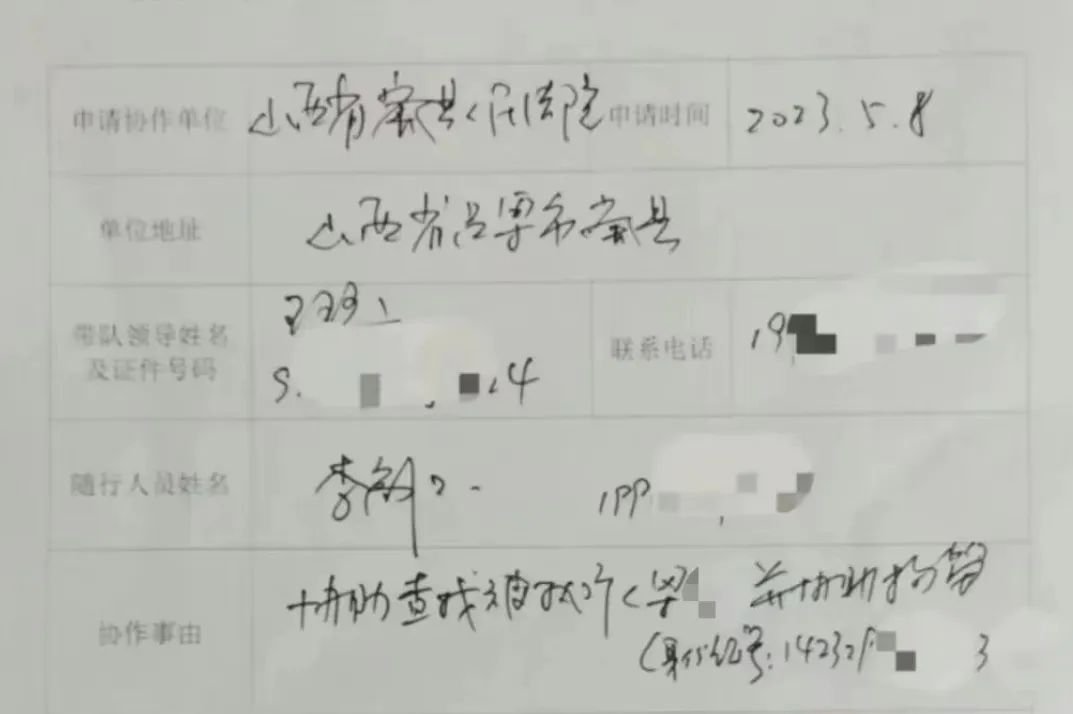 申请协作单位 山西省岚县人民法院 申请时间 2023.5.8
单位地址 山西省吕梁市岚县
带队领导姓名
及证件号码 联系电话 19
14
随行人员姓名 李 199
协作事由 协助查找被执行人 并协助扣留
(身份证号:14232 3